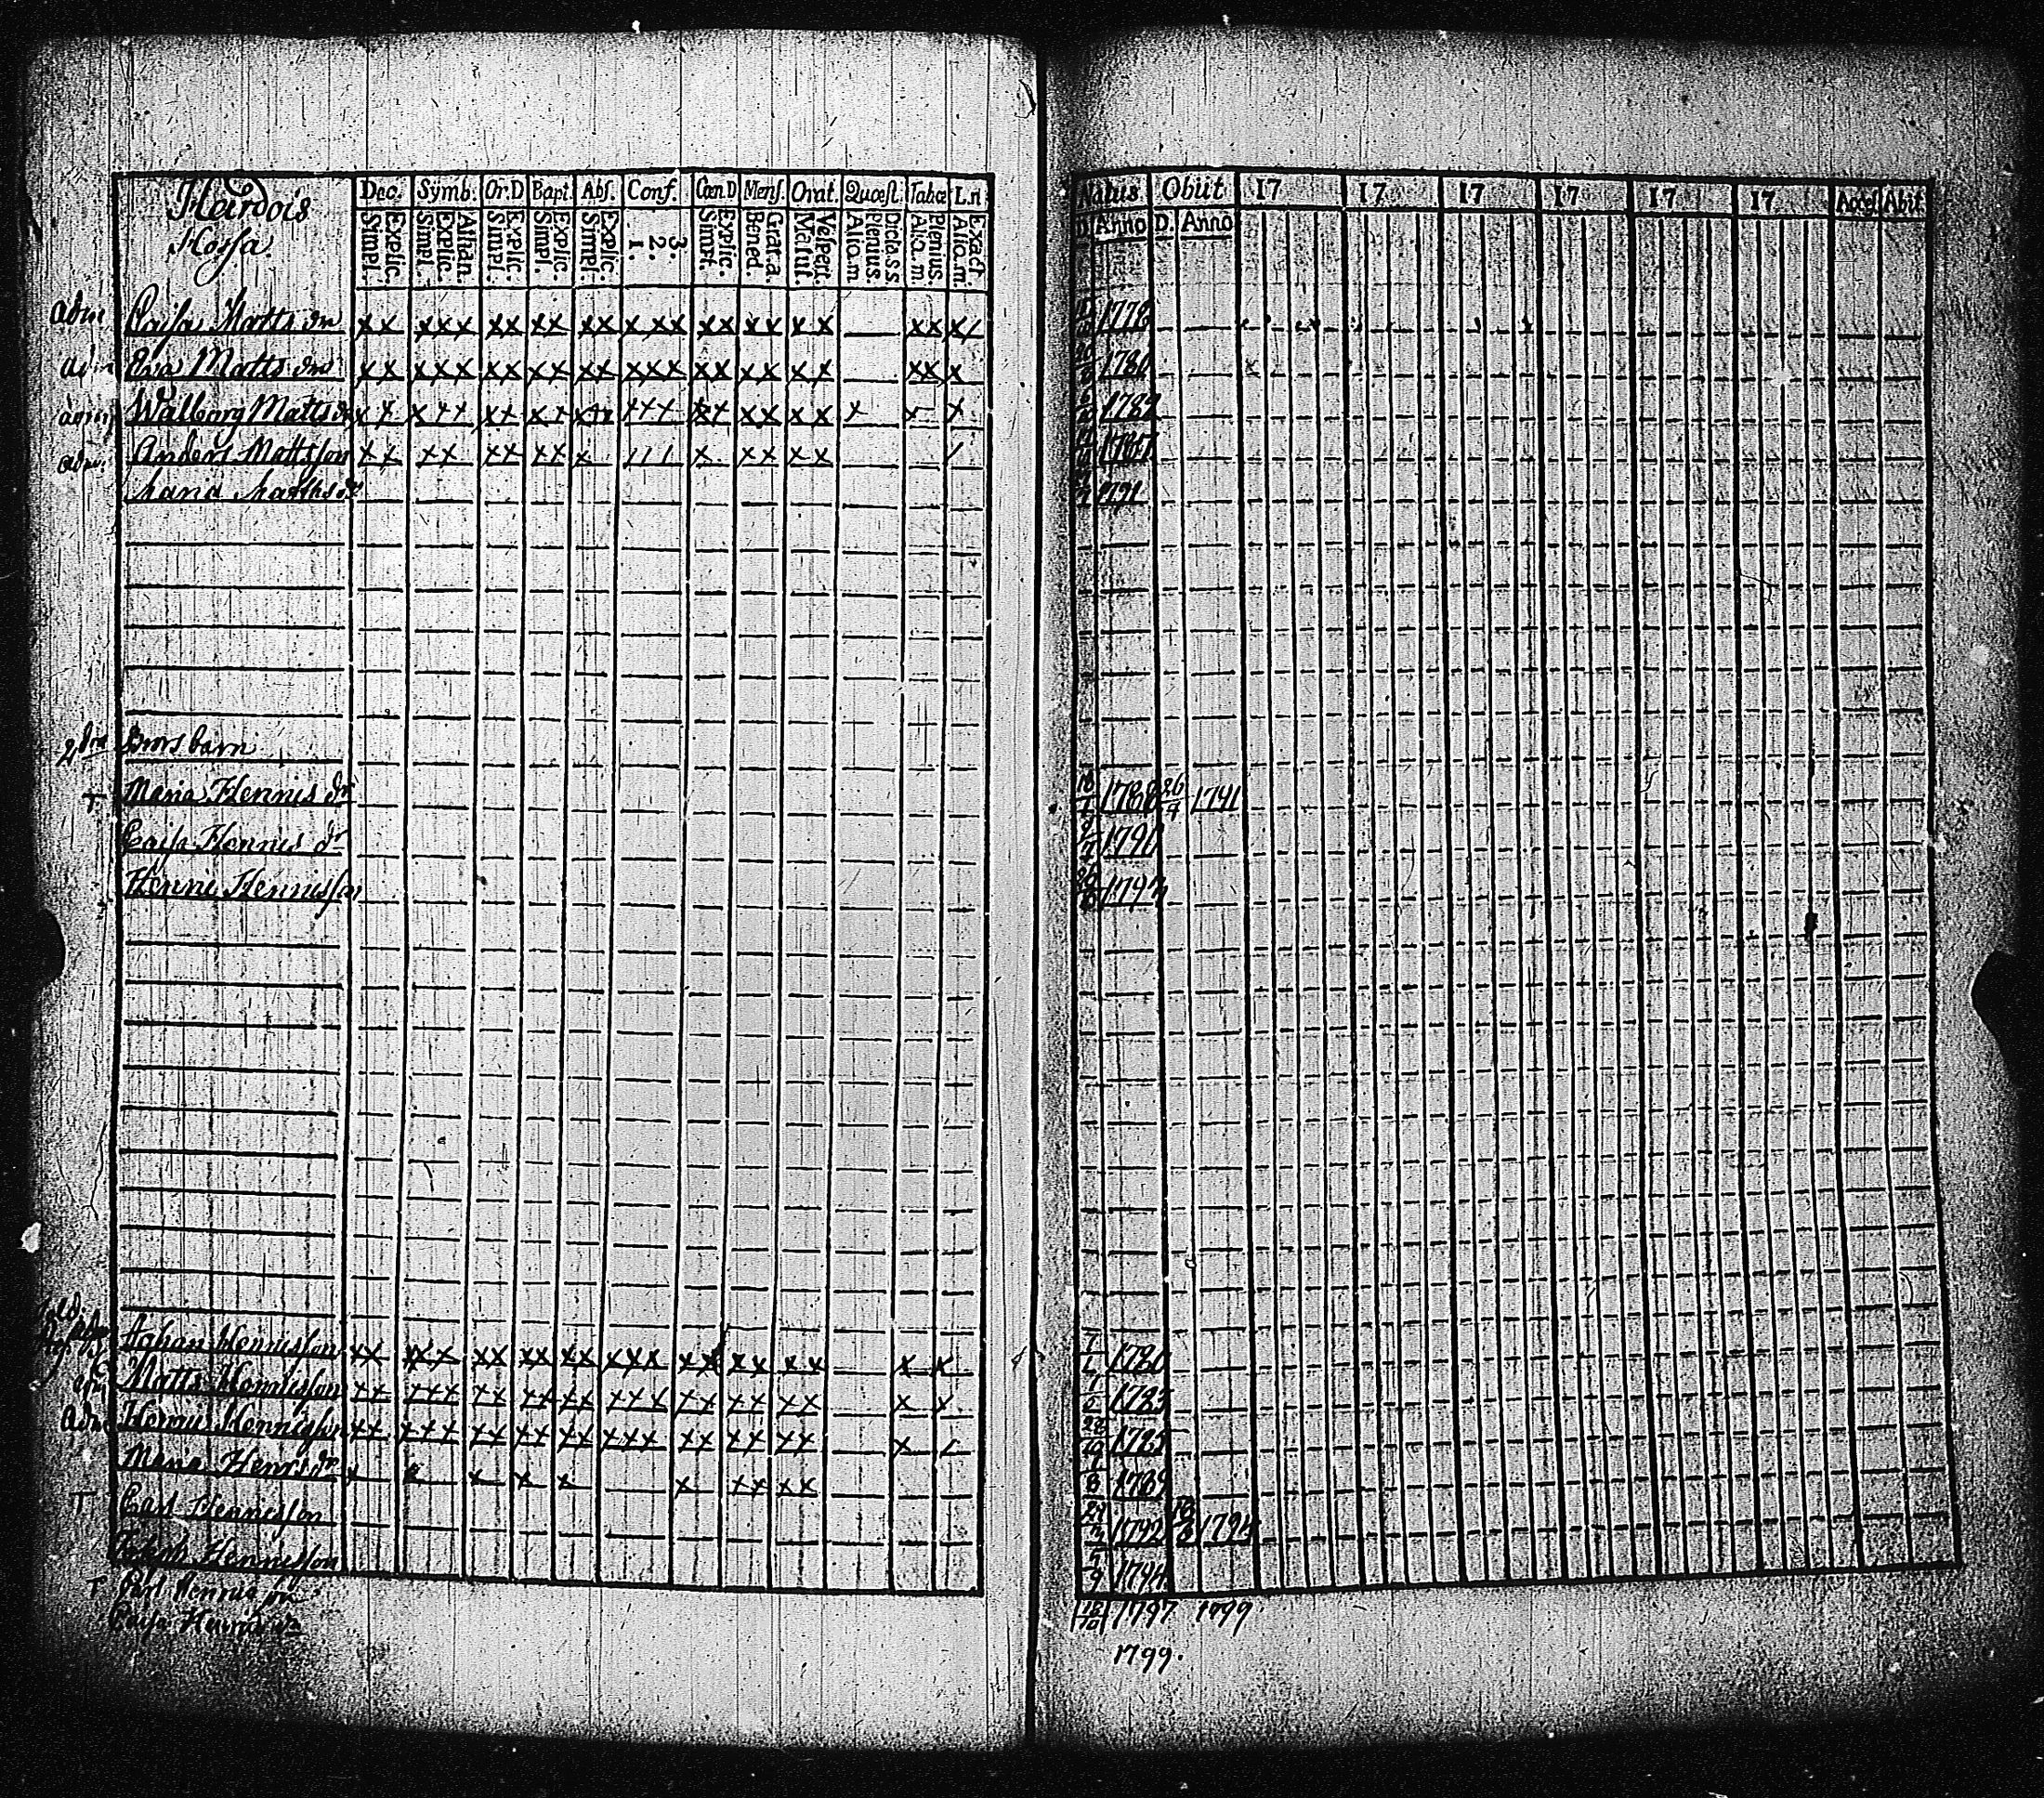 Heirdois
Hossa.
Dec. Symb. Or.D Bapt. Abs. Conf. Cœn D Mens. Orat. Quæst. Tabæ L.n
Explic. Simpl. Athan. Explic. Simpl. Explic. Simpl. Explic. Simpl. Explic. Simpl. 3. 2. 1. Explic. Simpl. Grat.a. Bened. Vespert. Matut. Dicta.s.s Plenius. Aliq.m Plenius. Aliq.m Exact. Aliq.m.
Natus Obiit 17 17 17 17 17 17 Access Abit
D. Anno D. Anno
Adm Caisa Matts dr xx xxx xx xx xx xxx xx xx xx xx x/ 1778
Adm Eva Matts dr xx xxx xx xx xx xxx xx xx xx xx x 1780
Walborg Matts dr xx xxx xx xx xxx xxx xx xx xx x x x 1782
adm. Anders Mattsson xx xx xx xx x /// x xx xx / 1787
Maria Matts dr 1791
Brors barn
T Maria Hennis dr 1788 26/4 1791
Caisa Hennis dr 1791
Henric Hennisson 1793
Johan Hennisson xx xxx xx xx xx xxx xx xx xx x x 1780
Matts Hennisson xx xxx xx xx xx xxx xx xx xx x x 1783
Adm Henric Hennisson xx xxx xx xx xx xxx xx xx xx x / 1785
Maria Henrs dr x x x x x x xx xx 1789
T Carl Hennisson 1792 1794
Joseph Hennisson 5/9 1794
T Carl Hennis son 12/10 1797 1799.
Caisa Hennis dr 1799.